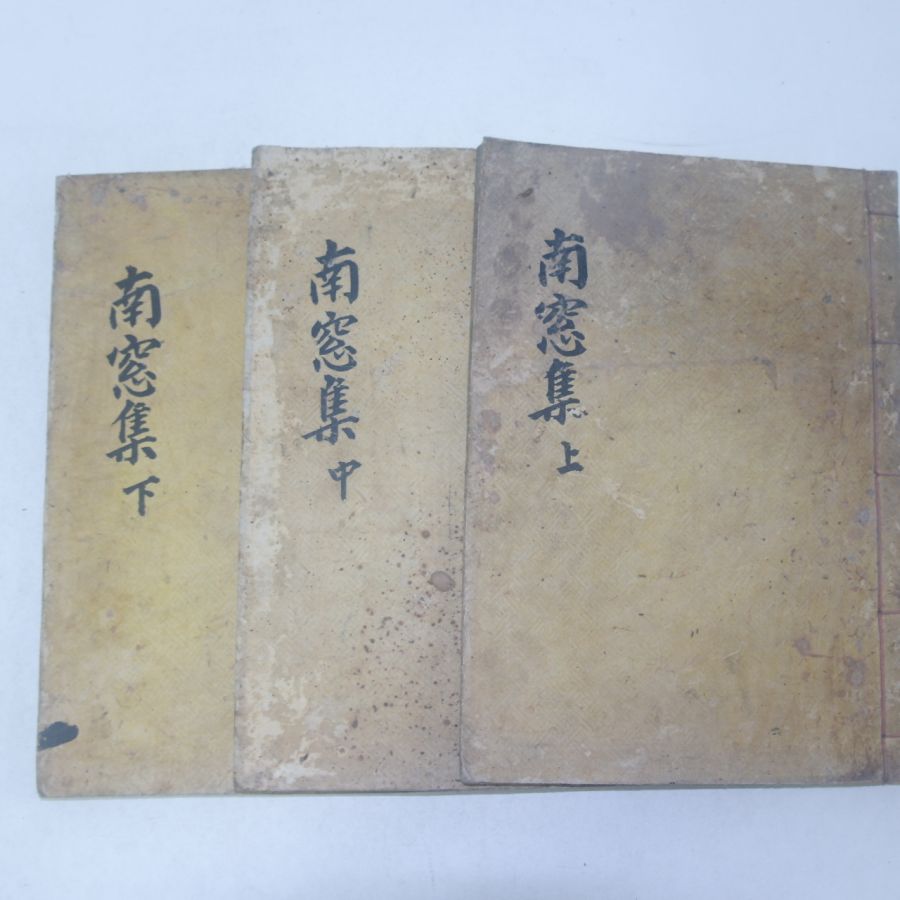 南窓集 上
南窓集 中
南窓集 下